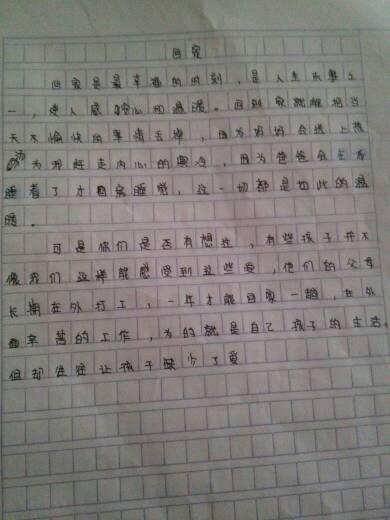 回家
回家是最幸福的时刻，是人生乐事之
一，使人感到安心和温暖。回到家就能把当
天不愉快的事情丢掉，因为妈妈会递上热
汤为我赶走内心的寒冷，因为爸爸会在我
睡着了才自己睡觉，这一切都是如此的温
暖。
可是你们是否有想过，有些孩子并不
像我们这样能感受到这些爱，他们的父母
长期在外打工，一年才能回家一趟，在外
辛苦的工作，为的就是自己孩子的生活，
但却往往让孩子缺少了爱